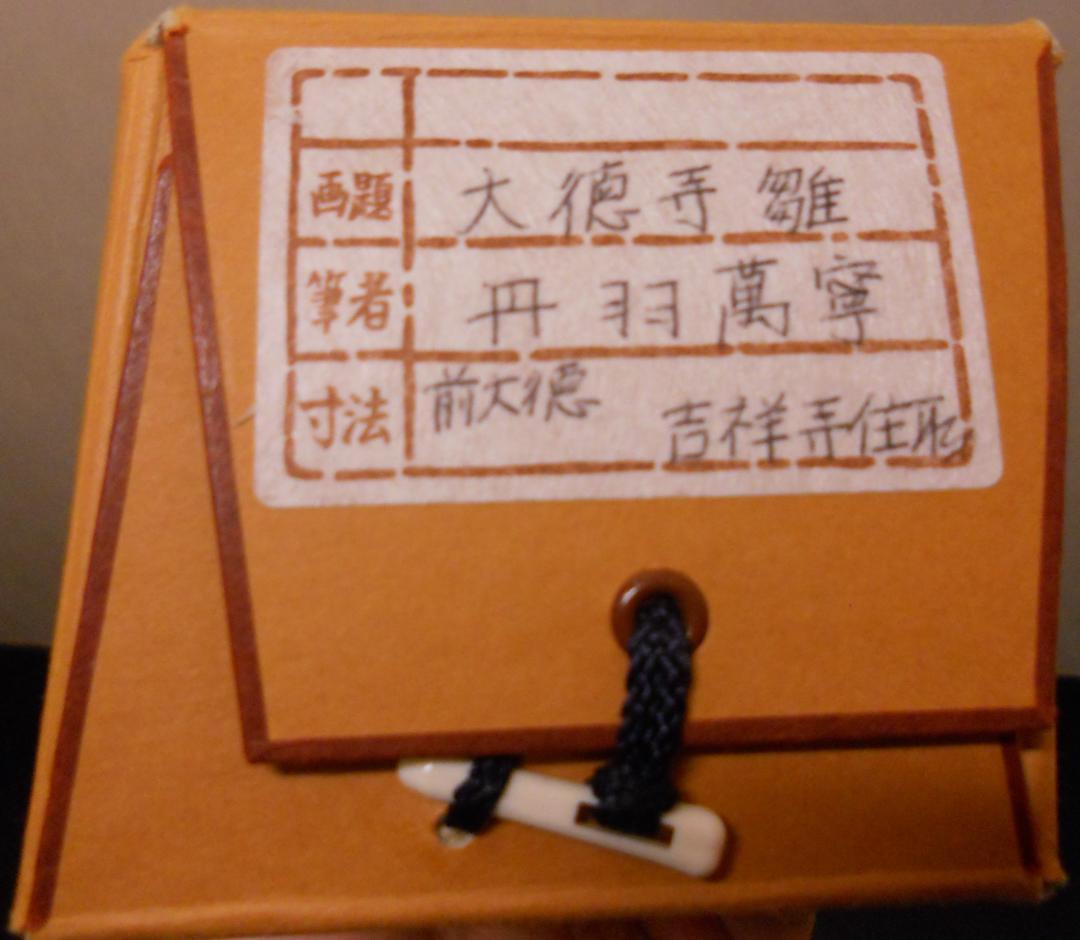 画題 大徳寺雛
筆者 丹羽萬寧
寸法 前大徳 吉祥寺住職